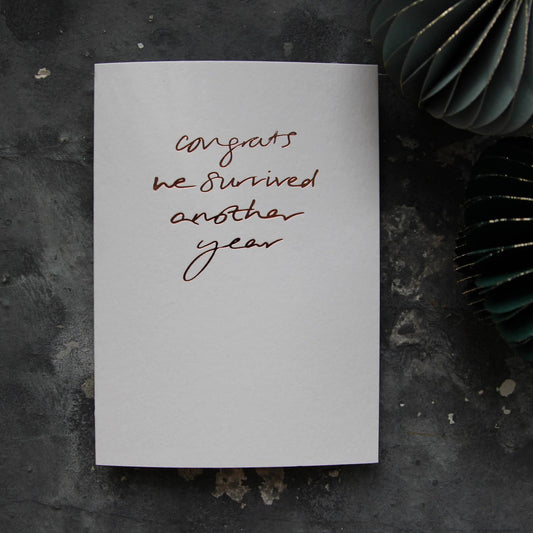 congrats
we survived
another
year